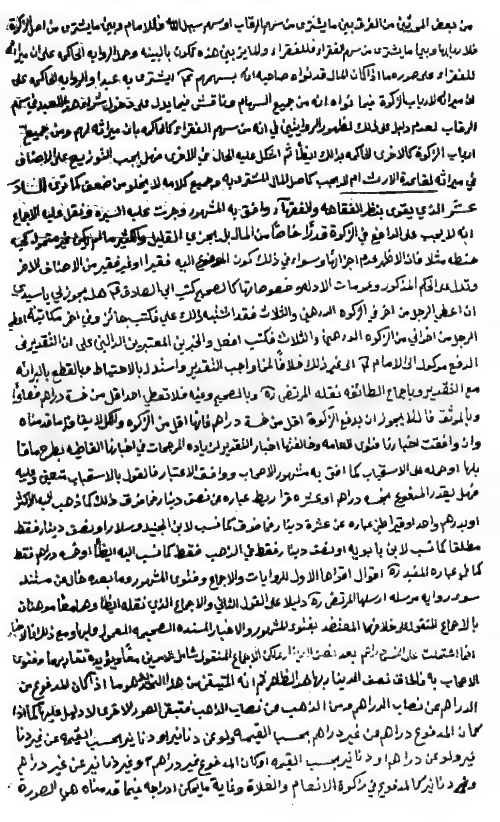 من بعض الموثقين من الفرق بين ما يشترى من سهم الرقاب او سهم سبيل الله فللامام وبين ما يشترى من اصل الزكوة
فلاربابها وبين ما يشترى من سهم الفقراء فللفقراء
للفقراء على صورة ما اذا كان المال قد نواه صاحبه انه بسهمهم ثم اشترى به عبدا والرواية الحاكمة على
ان ميراثه لارباب الزكوة فيما نواه انه من جميع السهام مناقش فيما يدل على
الرقاب لعدم دليل على ذلك لظهور الروايتين في انه من سهم الفقراء كالحاكمة بان ميراثه لهم ومن جميع
ارباب الزكوة كالاخرى الحاكمة بذلك ايضا ثم اشكل عليه الحال على الاخرى فهل يجب التوزيع على الاصناف
في ميراثه لقاعدة الارث ام لا يجب كاصل المال المشترى به وجميع كلامه لا يخلو من ضعف كما ترى
عشر الذي يقوى بنظر الفقاهة والفقهاء وافق به المشهور وجرت عليه السيرة ونقل عليه الاجماع
انه لا يجب على الدافع في الزكوة قدرا خاصا من المال بل يجزي القليل والكثير ما لم يكن غير متمول كحبة
حنطة مثلا فان الاظهر عدم اجزائها وسواء في ذلك كون المدفوع اليه فقيرا او غير فقير من الاصناف الاخر
وتدل على الحكم المذكور عمومات الادلة وخصوصاتها كالصحيح كتب الى الصادق هل يجوز لي يا سيدي
ان اعطي الرجل من اخواني من الزكوة الدرهمين والثلاثة فقد اشتبه ذلك علي فكتب جائز وفي اخر مكاتبة اعطي
الرجل من اخواني من الزكوة الدرهمين والثلاثة فكتب افعل والخبرين المعتبرين الدالين على ان التقدير في
الدفع موكول الى الامام الى غير ذلك خلافا لمن اوجب التقدير واستدل بالاحتياط مع القطع بالبرائة
مع التقدير وباجماع الطائفة نقله المرتضى ره وبالصحيح وفيه فلا تعطي احدا اقل من خمسة دراهم فصاعدا
وبالموثق قال لا يجوز ان يدفع الزكوة اقل من خمسة دراهم فانها اقل من الزكوة والكل لا يقاوم ما قدمناه
وان وافقت اخبارنا فتوى العامة وخالفتها اخبار التقدير لزيادة المرجحات في اخبارنا القاطعة بطرح ما قابلها
او حمله على الاستحباب كما افتى به مشهور الاصحاب ووافق الاعتبار فالقول بالاستحباب متعين وعليه
فهل يقدر المدفوع بخمسة دراهم او عشرة قراريط عبارة عن نصف دينار فما فوق ذلك كما ذهب اليه الاكثر
او بدرهم واحد او قيراطين عبارة عن عشر دينار فما فوق كما نسب لابن الجنيد وسلار او بنصف دينار فقط
مطلقا كما نسب لابن بابويه او بنصف دينار فقط في الذهب فقط كما نسب اليه ايضا او خمسة دراهم فقط
كما في عبارة المفيد ره اقوال اقواها الاول للروايات والاجماع وفتوى المشهور وما بعده خال عن مستند
سوى رواية مرسلة ارسلها المرتضى ره دليلا على القول الثاني والاجماع الذي نقله ايضا وهما معا موهنان
بالاجماع المنقول على خلافهما المعتضد بفتوى المشهور والاخبار المسندة الصحيحة المعمول عليها ومع ذلك فالاخبار
انما اشتملت على الخمسة دراهم الاجماع المنقول شامل للامرين معا ويؤيده تقاربهما وفتوى
الاصحاب به نصف الدينار بل هو الظاهر ثم انه المتيقن من هذا التقدير هو ما اذا كان المدفوع من
الدراهم من نصاب الدراهم وما الذهب من نصاب الذهب فتبقى الصور الاخرى لا دليل عليها كما اذا
كان المدفوع دراهم من غير دراهم بحسب القيمة ولو عن دنانير او دنانير بحسب القيمة عن غير دنانير
ولو عن دراهم او دنانير بحسب القيمة او كان المدفوع غير دراهم وغير دنانير عن غير دراهم
وغير دنانير كالمدفوع في زكوة الانعام والغلات وغاية ما يمكن ادراجه فيما قدمناه هي الصورة